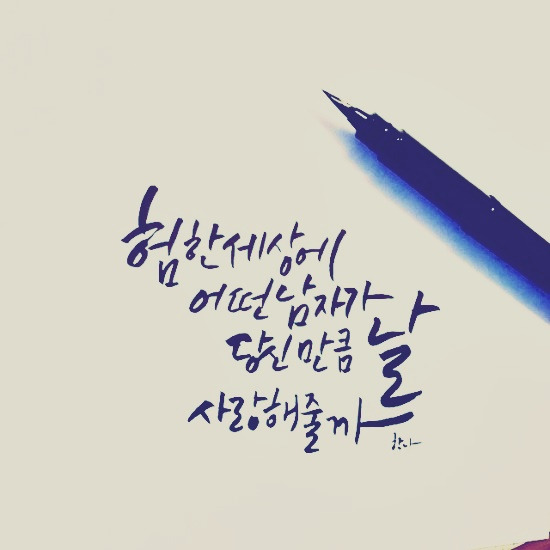 험한세상에
어떤남자가
당신만큼 날
사랑해줄까
한나